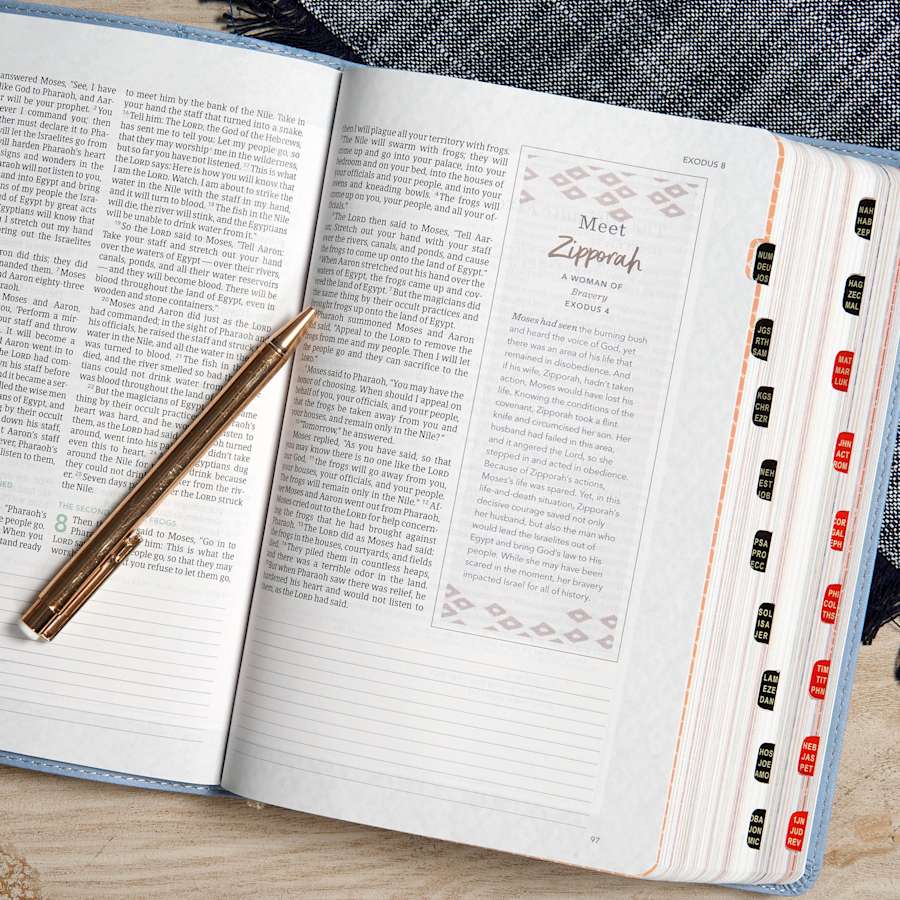 answered Moses, "See, I have
like God to Pharaoh, and Aar-
r will be your prophet. 2 You
ever I command you; then
ther must declare it to Pha-
will let the Israelites go from
will harden Pharaoh's heart
signs and wonders in the
raoh will not listen to you,
and into Egypt and bring
ns of my people the Isra-
f Egypt by great acts
Egyptians will know that
I stretch out my hand
bring out the Israelites
Aaron did this; they did
manded them. 7 Moses
nd Aaron eighty-three
araoh.
Moses and Aaron,
ou, 'Perform a mir-
your staff and throw
It will become a
and Aaron went to
the LORD had com-
n his staff before
d it became a ser-
lled the wise men
s of Egypt, and
by their occult
down his staff,
Aaron's staff
ever, Pharaoh's
listen to them,
"Pharaoh's
e people go.
When you
tand ready
to meet him by the bank of the Nile. Take in
your hand the staff that turned into a snake.
16 Tell him: The LORD, the God of the Hebrews,
has sent me to tell you: Let my people go, so
that they may worship me in the wilderness,
but so far you have not listened. 17 This is what
the LORD says: Here is how you will know that
I am the LORD. Watch. I am about to strike the
water in the Nile with the staff in my hand,
and it will turn to blood. 18 The fish in the Nile
will die, the river will stink, and the Egyptians
will be unable to drink water from it."
19 So the LORD said to Moses, "Tell Aaron:
Take your staff and stretch out your hand
over the waters of Egypt — over their rivers,
canals, ponds, and all their water reservoirs
— and they will become blood. There will be
blood throughout the land of Egypt, even in
wooden and stone containers."
20 Moses and Aaron did just as the LORD
had commanded; in the sight of Pharaoh and
his officials, he raised the staff and struck the
water in the Nile, and all the water in the
was turned to blood. 21 The fish in the
died, and the river smelled so bad the
tians could not drink water from
was blood throughout the land of Egypt.
22 But the magicians of Egypt did the
thing by their occult practices.
heart was hard, and he would not listen to
them, as the LORD had said.
around, went into his palace,
even this to heart.
around the Nile for
they could not drink
er. 25 Seven days
the Nile.
THE SECOND FROGS
8 Then "Go in to
him: This is what the
wors people go, so that they may
if you refuse to let them go,
EXODUS 8
then I will plague all your territory with frogs.
3 The Nile will swarm with frogs; they will
come up and go into your palace, into your
bedroom and on your bed, into the houses of
your officials and your people, and into your
ovens and kneading bowls. 4 The frogs will
come up on you, your people, and all your of-
ficials."
5 The LORD then said to Moses, "Tell Aar-
on: Stretch out your hand with your staff
over the rivers, canals, and ponds, and cause
the frogs to come up onto the land of Egypt."
6 When Aaron stretched out his hand over the
waters of Egypt, the frogs came up and cov-
ered the land of Egypt. 7 But the magicians did
the same thing by their occult practices and
brought frogs up onto the land of Egypt.
8 Pharaoh summoned Moses and Aaron
and said, "Appeal to the LORD to remove the
frogs from me and my people. Then I will let
the people go and they can sacrifice to the
LORD."
9 Moses said to Pharaoh, "You may have the
honor of choosing. When should I appeal on
behalf of you, your officials, and your people,
that the frogs be taken away from you and
your houses, and remain only in the Nile?"
10 "Tomorrow," he answered.
Moses replied, "As you have said, so that
you may know there is no one like the LORD
our God, 11 the frogs will go away from you,
your houses, your officials, and your people.
The frogs will remain only in the Nile." 12 Af-
ter Moses and Aaron went out from Pharaoh,
Moses cried out to the LORD for help concern-
ing the frogs that he had brought against
Pharaoh. 13 The LORD did as Moses had said:
the frogs in the houses, courtyards, and fields
died. 14 They piled them in countless heaps,
and there was a terrible odor in the land.
15 But when Pharaoh saw there was relief, he
hardened his heart and would not listen to
them, as the LORD had said.
Meet
Zipporah
A WOMAN OF
Bravery
EXODUS 4
Moses had seen the burning bush
and heard the voice of God, yet
there was an area of his life that
remained in disobedience. And
if his wife, Zipporah, hadn't taken
action, Moses would have lost his
life. Knowing the conditions of the
covenant, Zipporah took a flint
knife and circumcised her son. Her
husband had failed in this area,
and it angered the Lord, so she
stepped in and acted in obedience.
Because of Zipporah's actions,
Moses's life was spared. Yet, in this
life-and-death situation, Zipporah's
decisive courage saved not only
her husband, but also the man who
would lead the Israelites out of
Egypt and bring God's law to His
people. While she may have been
scared in the moment, her bravery
impacted Israel for all of history.
97
NUM
DEU
JOS
JGS
RTH
SAM
KGS
CHR
EZR
NEH
EST
JOB
PSA
PRO
ECC
SOL
ISA
JER
LAM
EZE
DAN
HOS
JOE
AMO
OBA
JON
MIC
NAH
HAB
ZEP
HAG
ZEC
MAL
MAT
MAR
LUK
JHN
ACT
ROM
COR
GAL
EPH
PHI
COL
THS
TIM
TIT
PHN
HEB
JAS
PET
1JN
JUD
REV